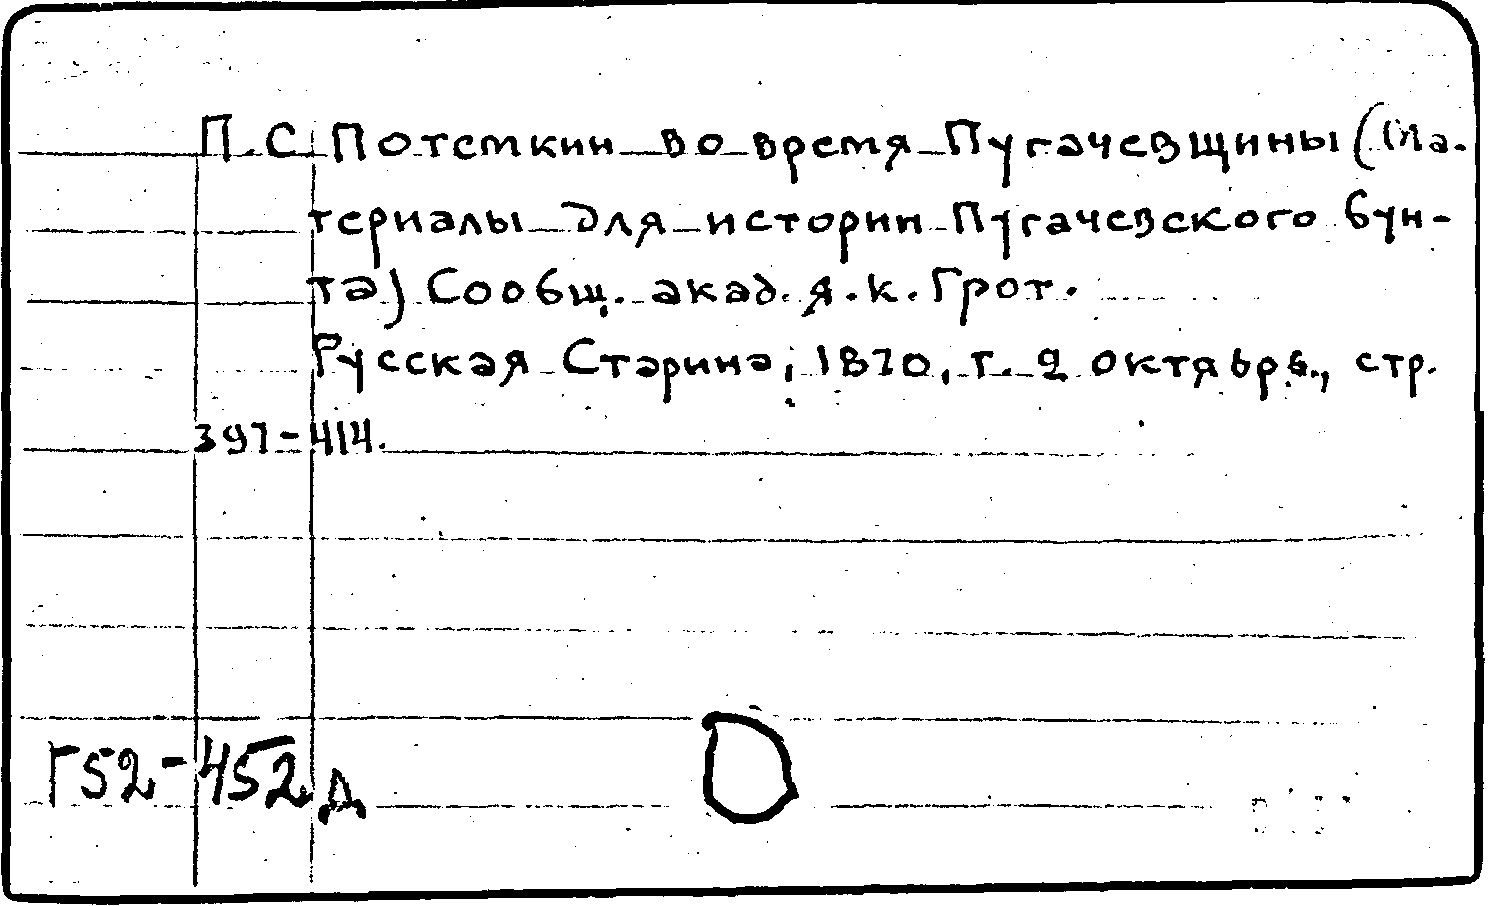 П.С Потемкин во время Пугачевщины (Ма-
териалы для истории Пугачевского бун-
та) Сообщ. акад. Я.К. Грот.
Русская Старина, 1870, т. 2 октябрь, стр.
397-414.
Г52-452 Д